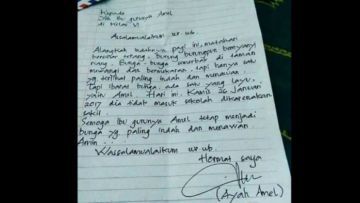 Kepada
Yth. Ibu gurunya Amel
di Kelas VI
Assalamualaikum wr. wb.
Alangkah indahnya pagi ini, matahari
bersinar terang. Burung burungpun bernyanyi
riang. Bunga bunga di taman
mewangi dan bermekaran, tapi hanya satu
yg terlihat paling indah dan menawan.
Tapi ibarat bunga ada satu yang layu,
yaitu Amel. Hari ini Kamis 26 Januari
2017 dia tidak masuk sekolah dikarenakan
sakit.
Semoga Ibu gurunya Amel tetap menjadi
bunga yg. paling indah dan menawan
Amin...
Wassalamualaikum wr. wb.
Hormat saya
(Ayah Amel)